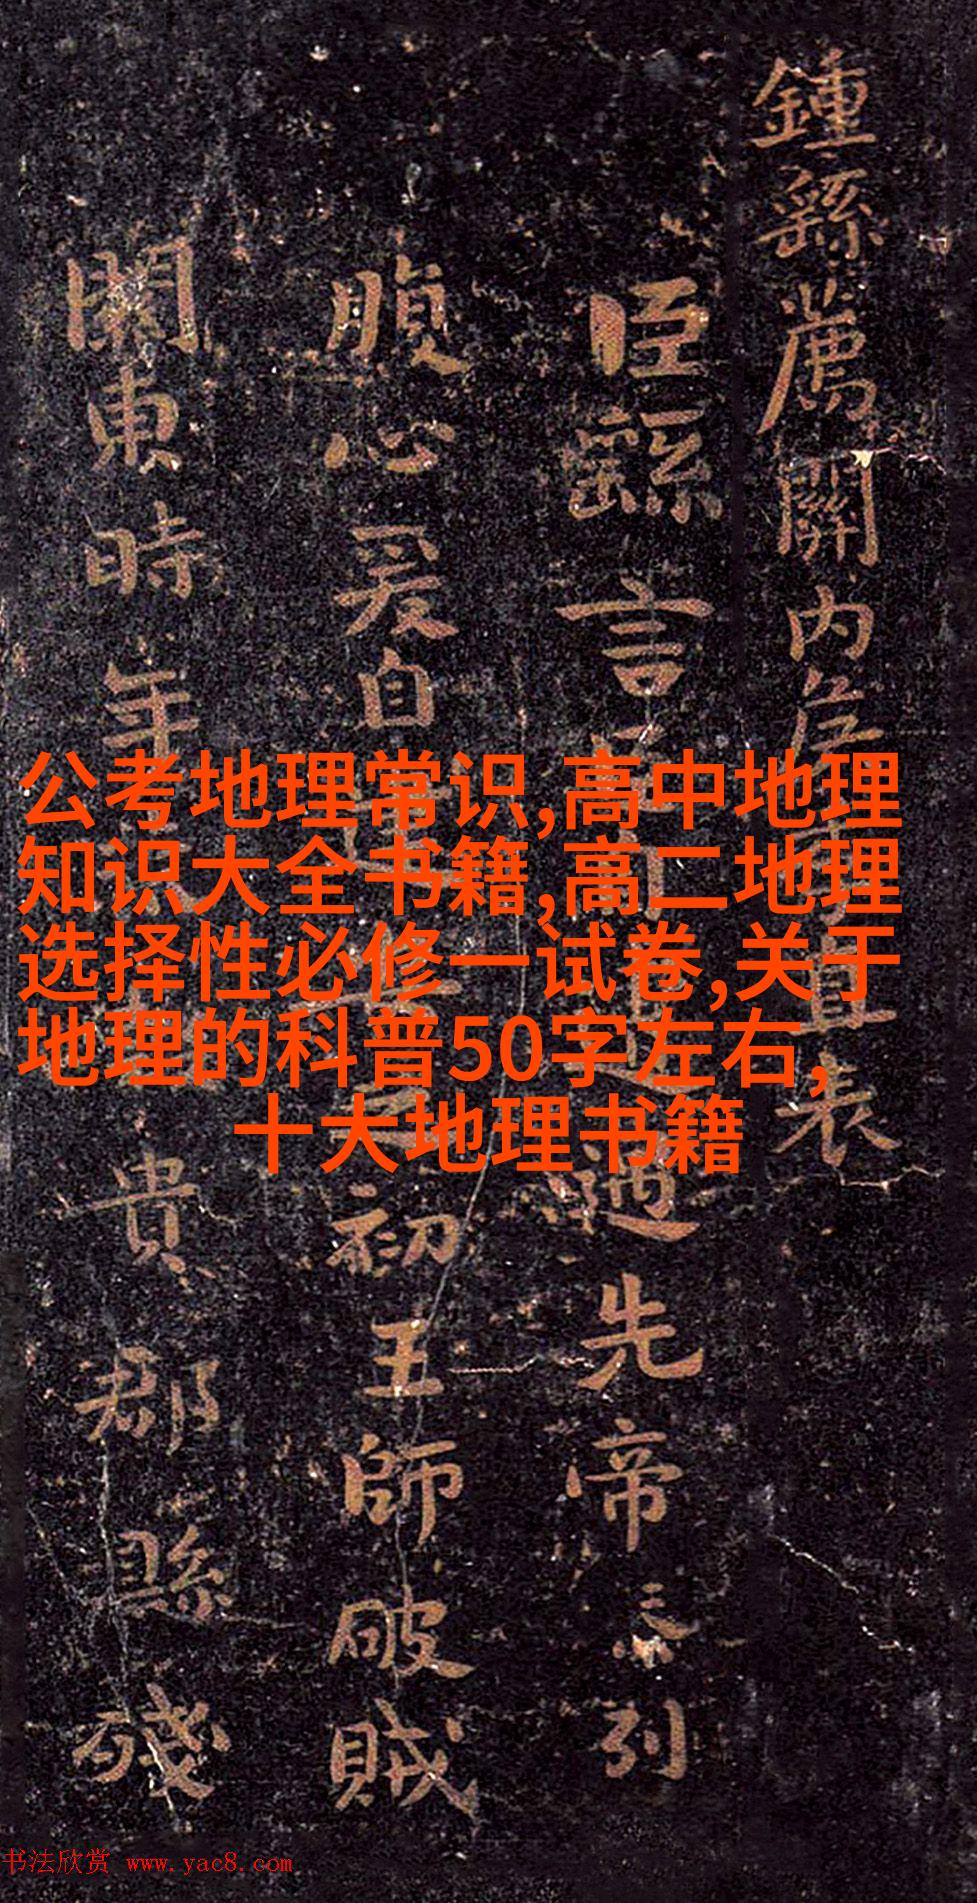 公考地理常识,高中地理
知识大全书籍,高二地理
选择性必修一试卷,关于
地理的科普50字左右,
十大地理书籍
鍾繇薦關內侯直表
臣繇言遇先帝忝列
腹心爰自初王師破賊
關東時年貴郡縣殘
书法欣赏 www.yac8.com